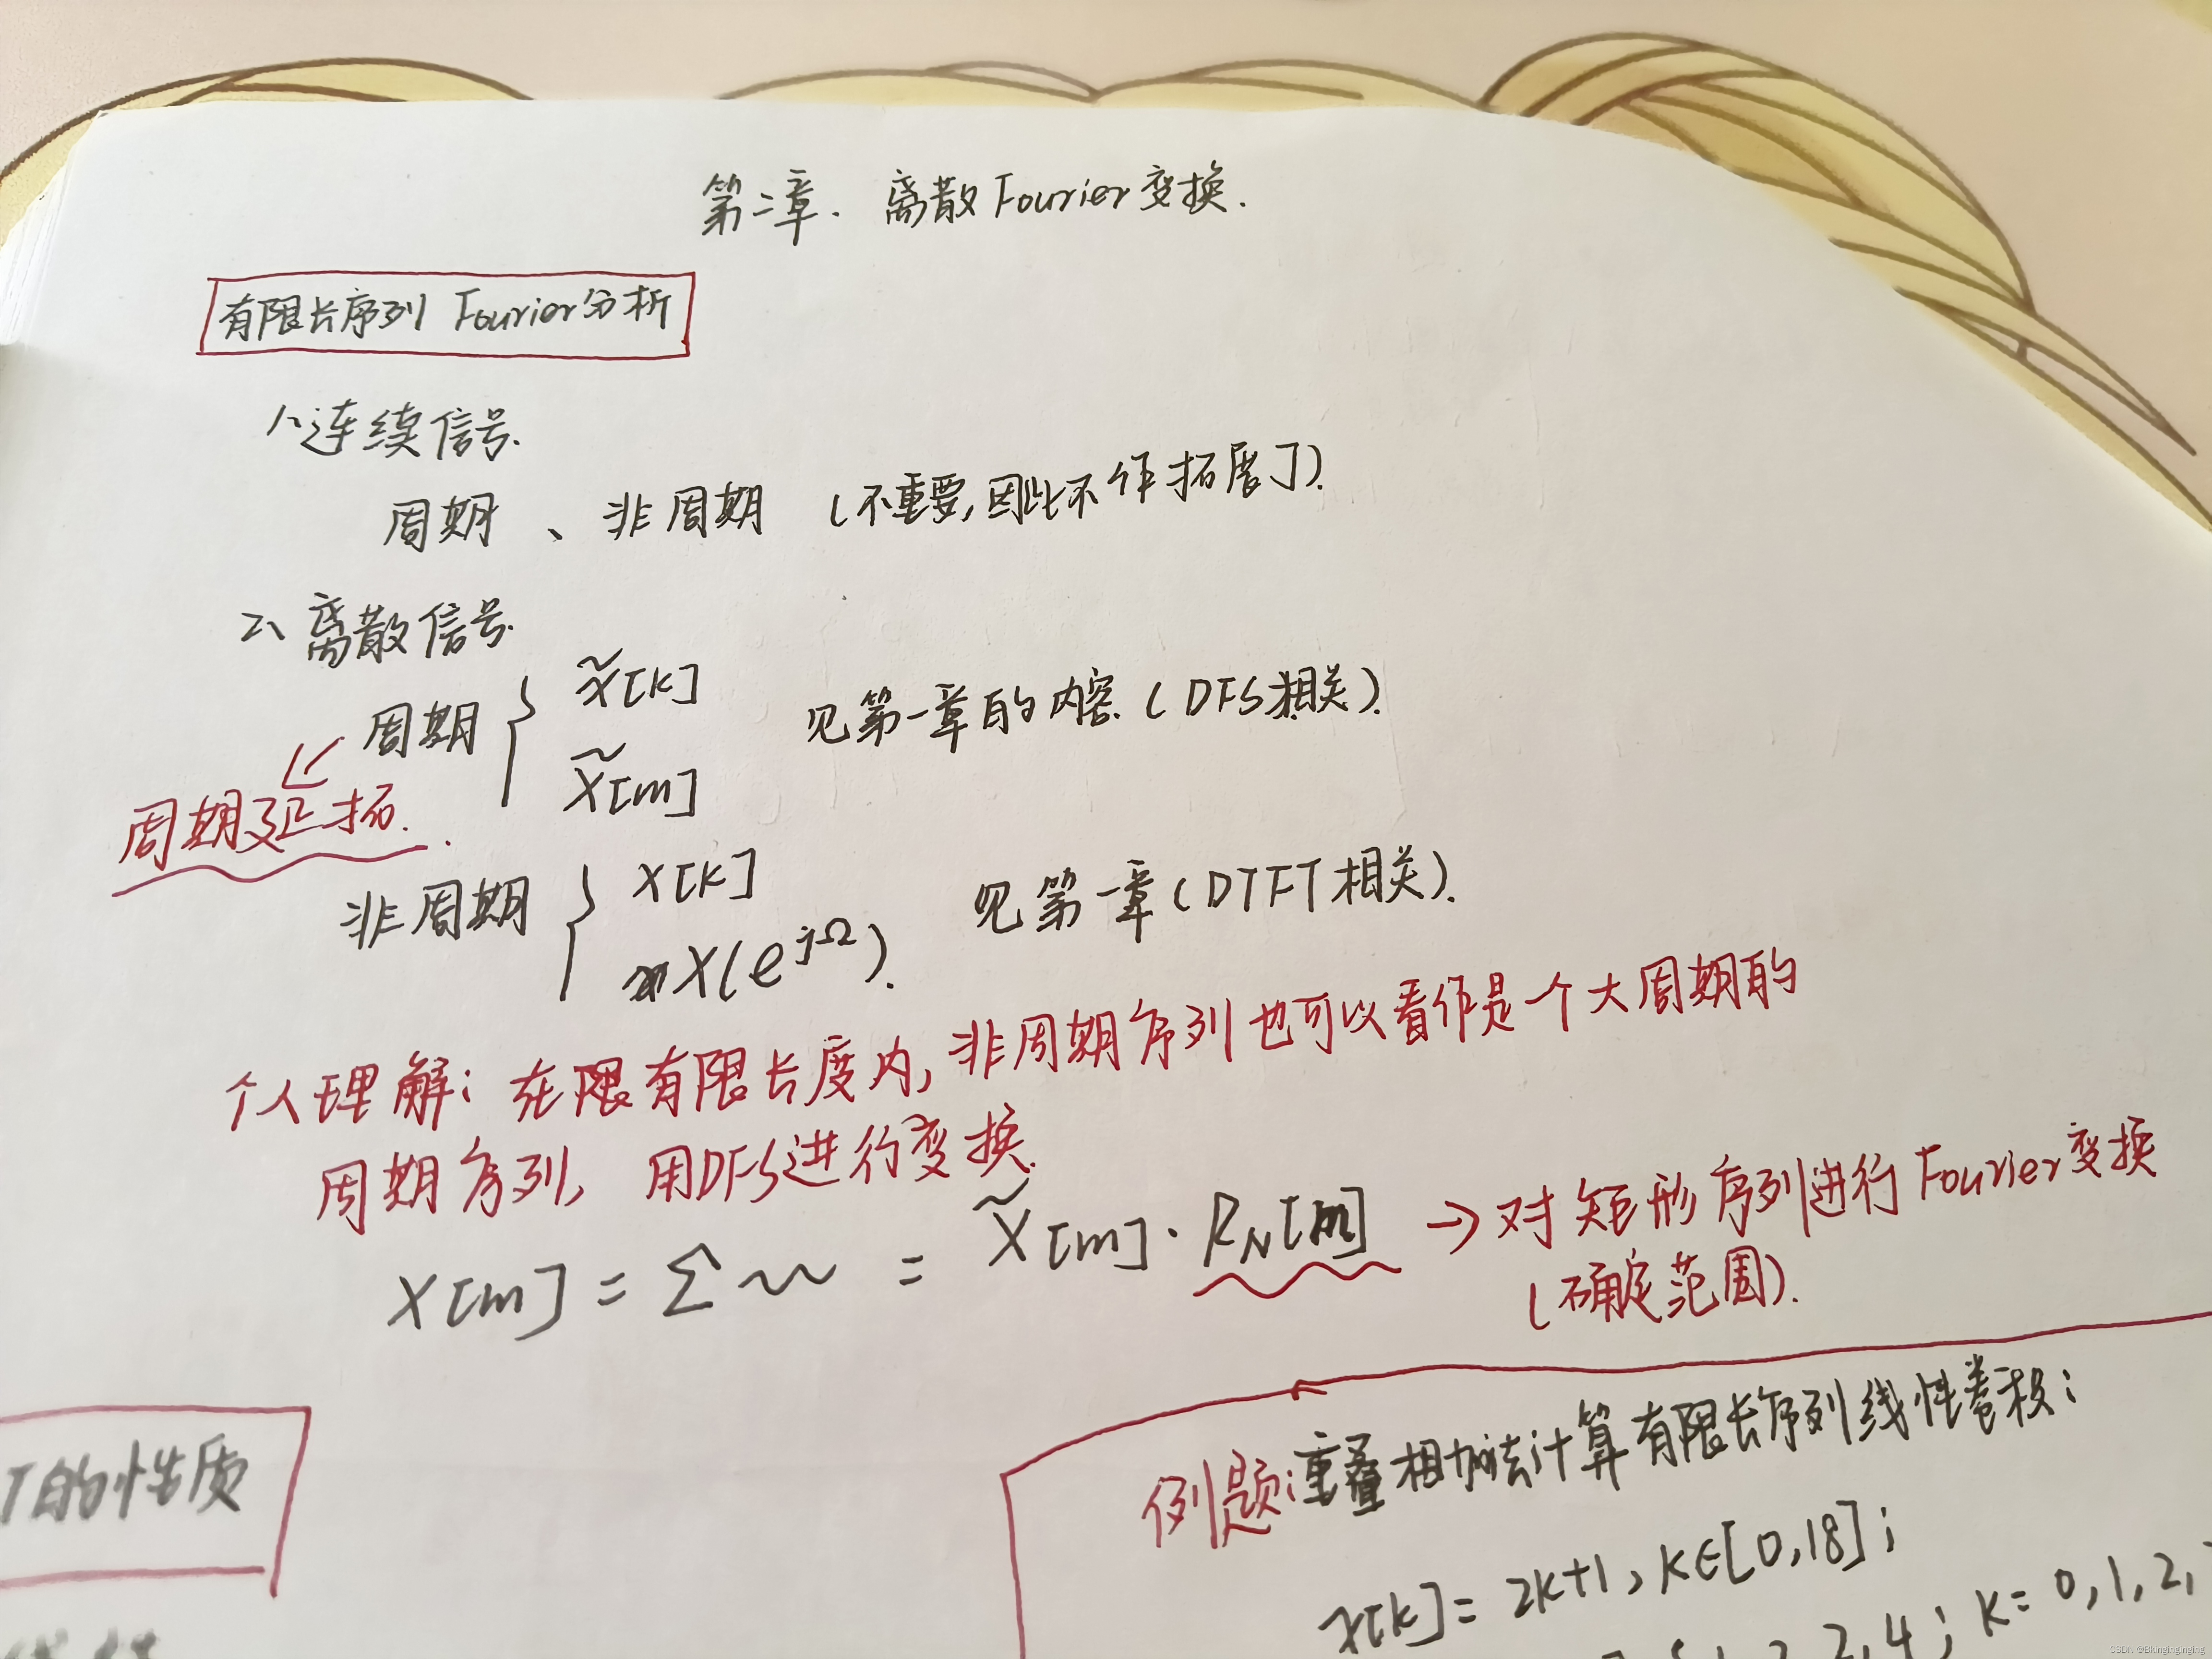 第二章. 离散Fourier变换.
有限长序列 Fourier分析
1、连续信号.
周期、非周期 (不重要,因此不作拓展了).
2、离散信号.
周期 { x̃[k] X̃[m] 见第一章的内容.(DFS相关).
周期延拓.
非周期 { x[k] X(e^{jΩ}). 见第一章(DTFT相关).
个人理解: 在限有限长度内,非周期序列也可以看作是一个大周期的
周期序列, 用DFS进行变换.
X[m] = Σ ~~ = X̃[m]·R_N[m] → 对矩形序列进行Fourier变换
(确定范围).
T的性质
例题:重叠相加法计算有限长序列线性卷积:
x[k]= 2k+1, k∈[0,18];
2,4; k=0,1,2,
CSDN @Bkinginginging